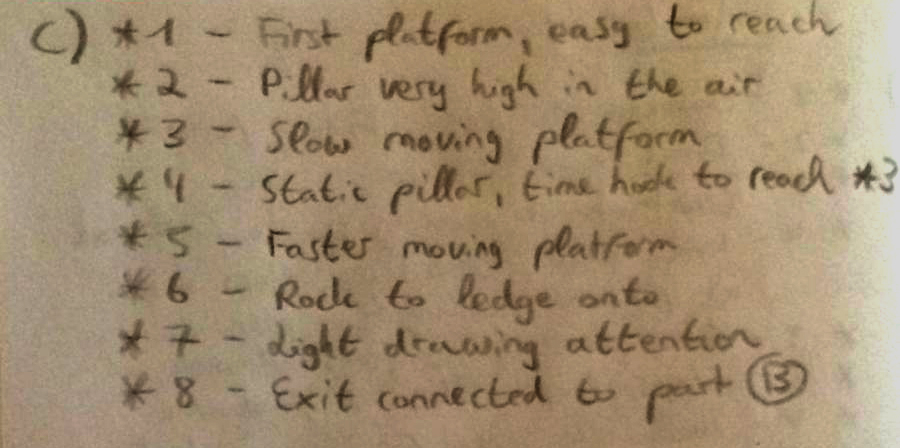 C) *1 - First platform, easy to reach
*2 - Pillar very high in the air
*3 - Slow moving platform
*4 - Static pillar, time to reach *3
*5 - Faster moving platform
*6 - Rock to ledge onto
*7 - Light drawing attention
*8 - Exit connected to part B